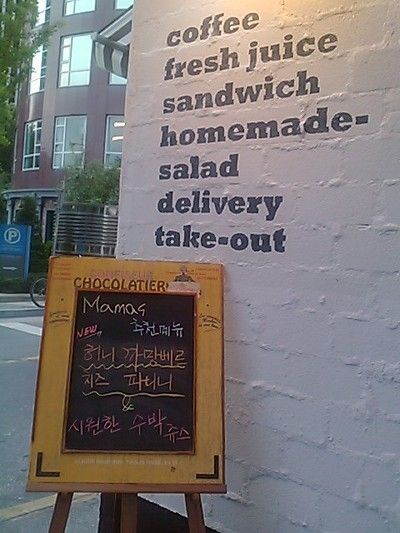 coffee
fresh juice
sandwich
homemade-
salad
delivery
take-out
CONFISEUR
CHOCOLATIER
Mamas
NEW 추천메뉴
허니 까망베르
치즈 파니니
&
시원한 수박쥬스
P